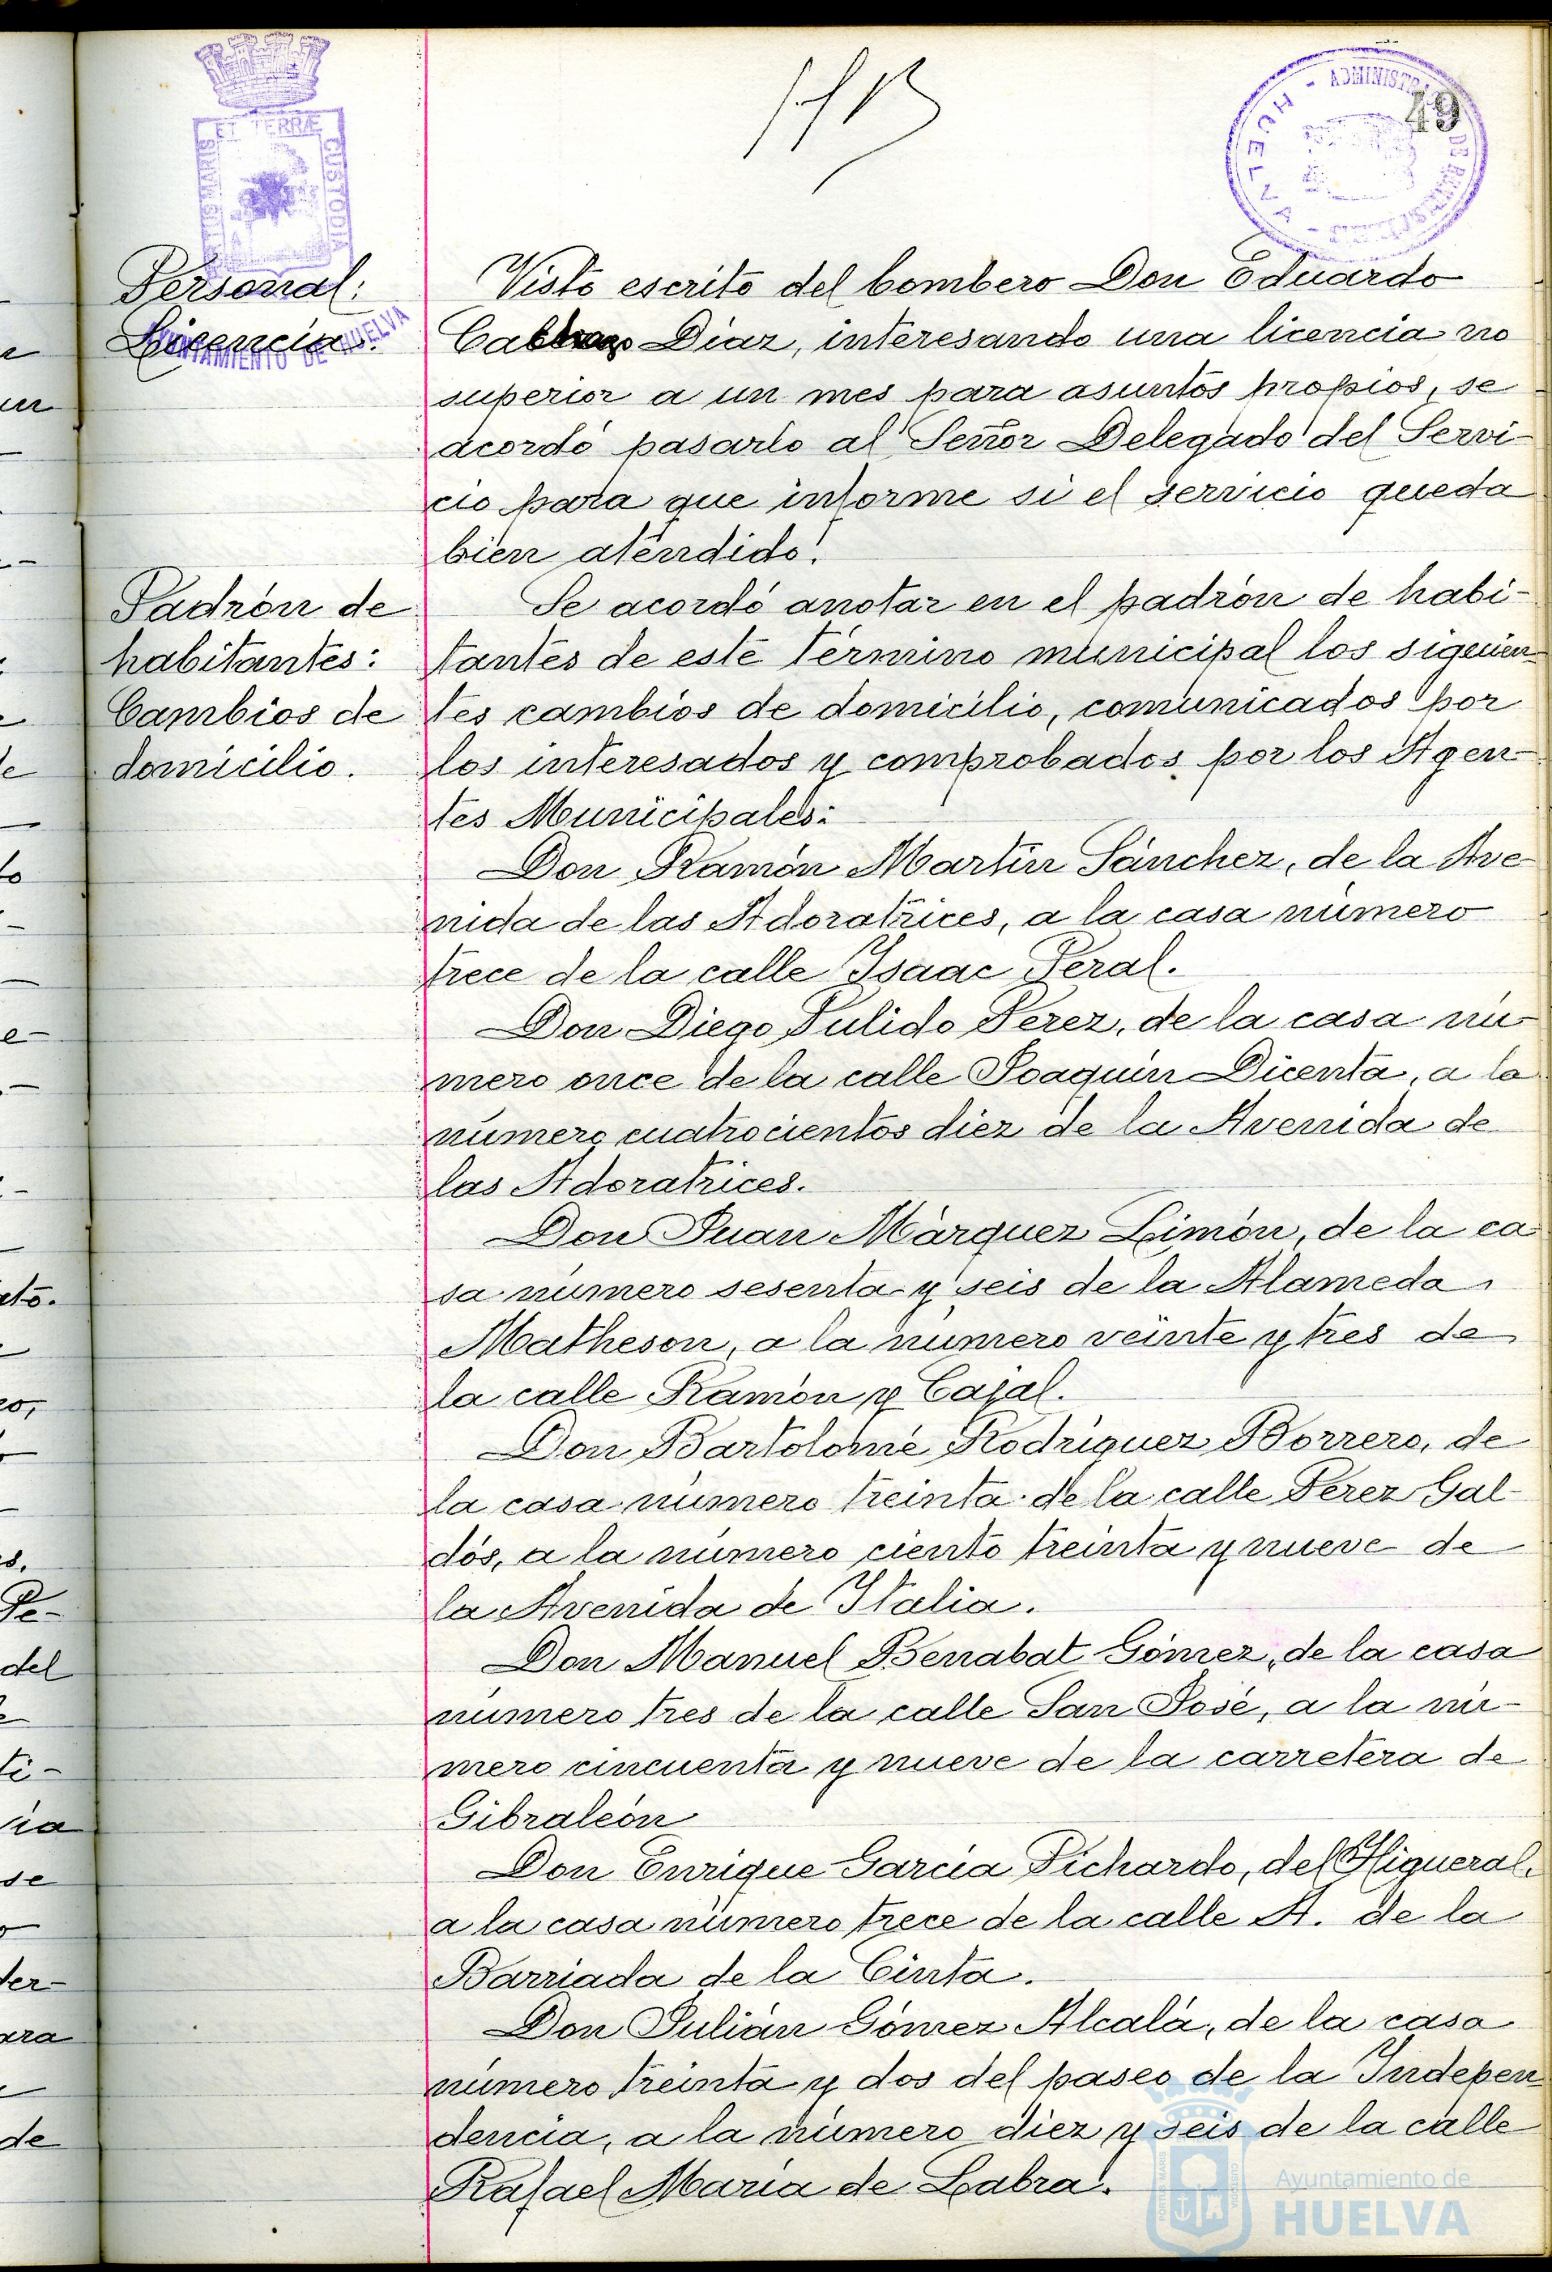 49
ET TERRÆ
CUSTODIA
MARIS
AYUNTAMIENTO DE HUELVA
HUELVA
Personal:
Licencia.
Visto escrito del bombero Don Eduardo
Diaz, interesando una licencia no
superior a un mes para asuntos propios, se
acordó pasarlo al Señor Delegado del Servi-
cio para que informe si el servicio queda
bien atendido.
Padrón de
habitantes:
Cambios de
domicilio.
Se acordó anotar en el padrón de habi-
tantes de este término municipal los siguien-
tes cambios de domicilio, comunicados por
los interesados y comprobados por los Agen-
tes Municipales:
Don Ramón Martín Sánchez, de la Ave
nida de las Adoratrices, a la casa número
trece de la calle Isaac Peral.
Don Diego Pulido Pérez, de la casa nú-
mero once de la calle Joaquín Dicenta, a la
número cuatrocientos diez de la Avenida de
las Adoratrices.
Don Juan Márquez Limón, de la ca
sa número sesenta y seis de la Alameda
Matheson, a la número veinte y tres de
la calle Ramón y Cajal.
Don Bartolomé Rodríguez Borrero, de
la casa número treinta de la calle Pérez Gal-
dós, a la número ciento treinta y nueve de
la Avenida de Italia.
Don Manuel Benabat Gómez, de la casa
número tres de la calle San José, a la nú-
mero cincuenta y nueve de la carretera de
Gibraleón
Don Enrique García Pichardo, del Higueral,
a la casa número trece de la calle A. de la
Barriada de la Cinta.
Don Julián Gómez Alcalá, de la casa
número treinta y dos del paseo de la Indepen
dencia, a la número diez y seis de la calle
Rafael María de Labra.
Ayuntamiento de
HUELVA